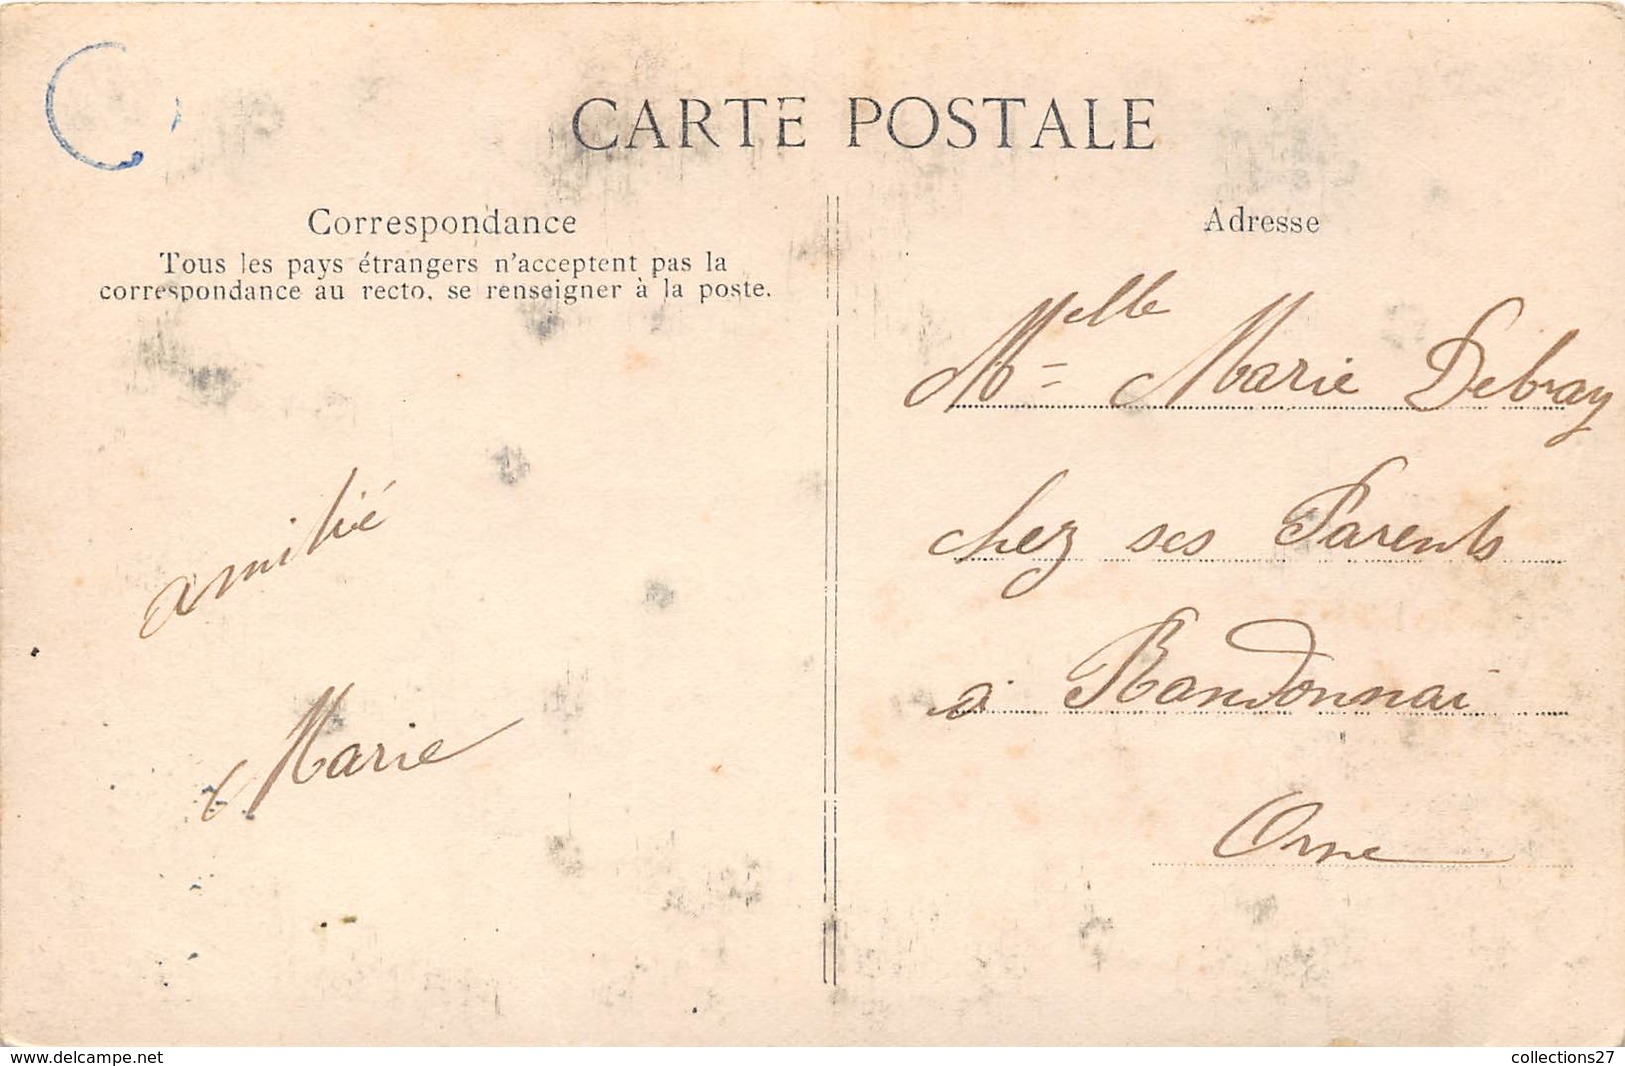 CARTE POSTALE
Correspondance
Tous les pays étrangers n'acceptent pas la
correspondance au recto, se renseigner à la poste.
amitié
Marie
Adresse
Melle Marie Debray
chez ses Parents
à Randonnai
Orne
www.delcampe.net
collections27